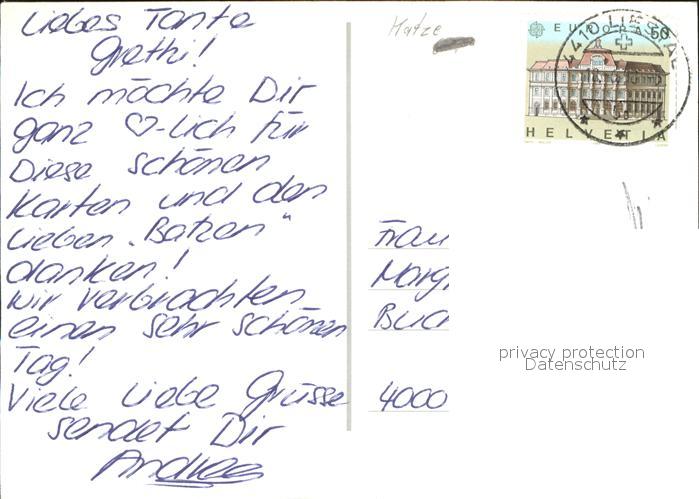 Liebes Tante
Grethi!
Ich möchte Dir
ganz ♡-lich für
Diese schönen
Karten und den
lieben „Batzen“
danken!
Wir verbrachten
einen sehr schönen
Tag!
Viele Liebe Grüsse
sendet Dir
Andrea
Matze
EUROPA 50
HELVETIA
4410 LIESTAL
Frau
Marg
Buch
4000
privacy protection
Datenschutz